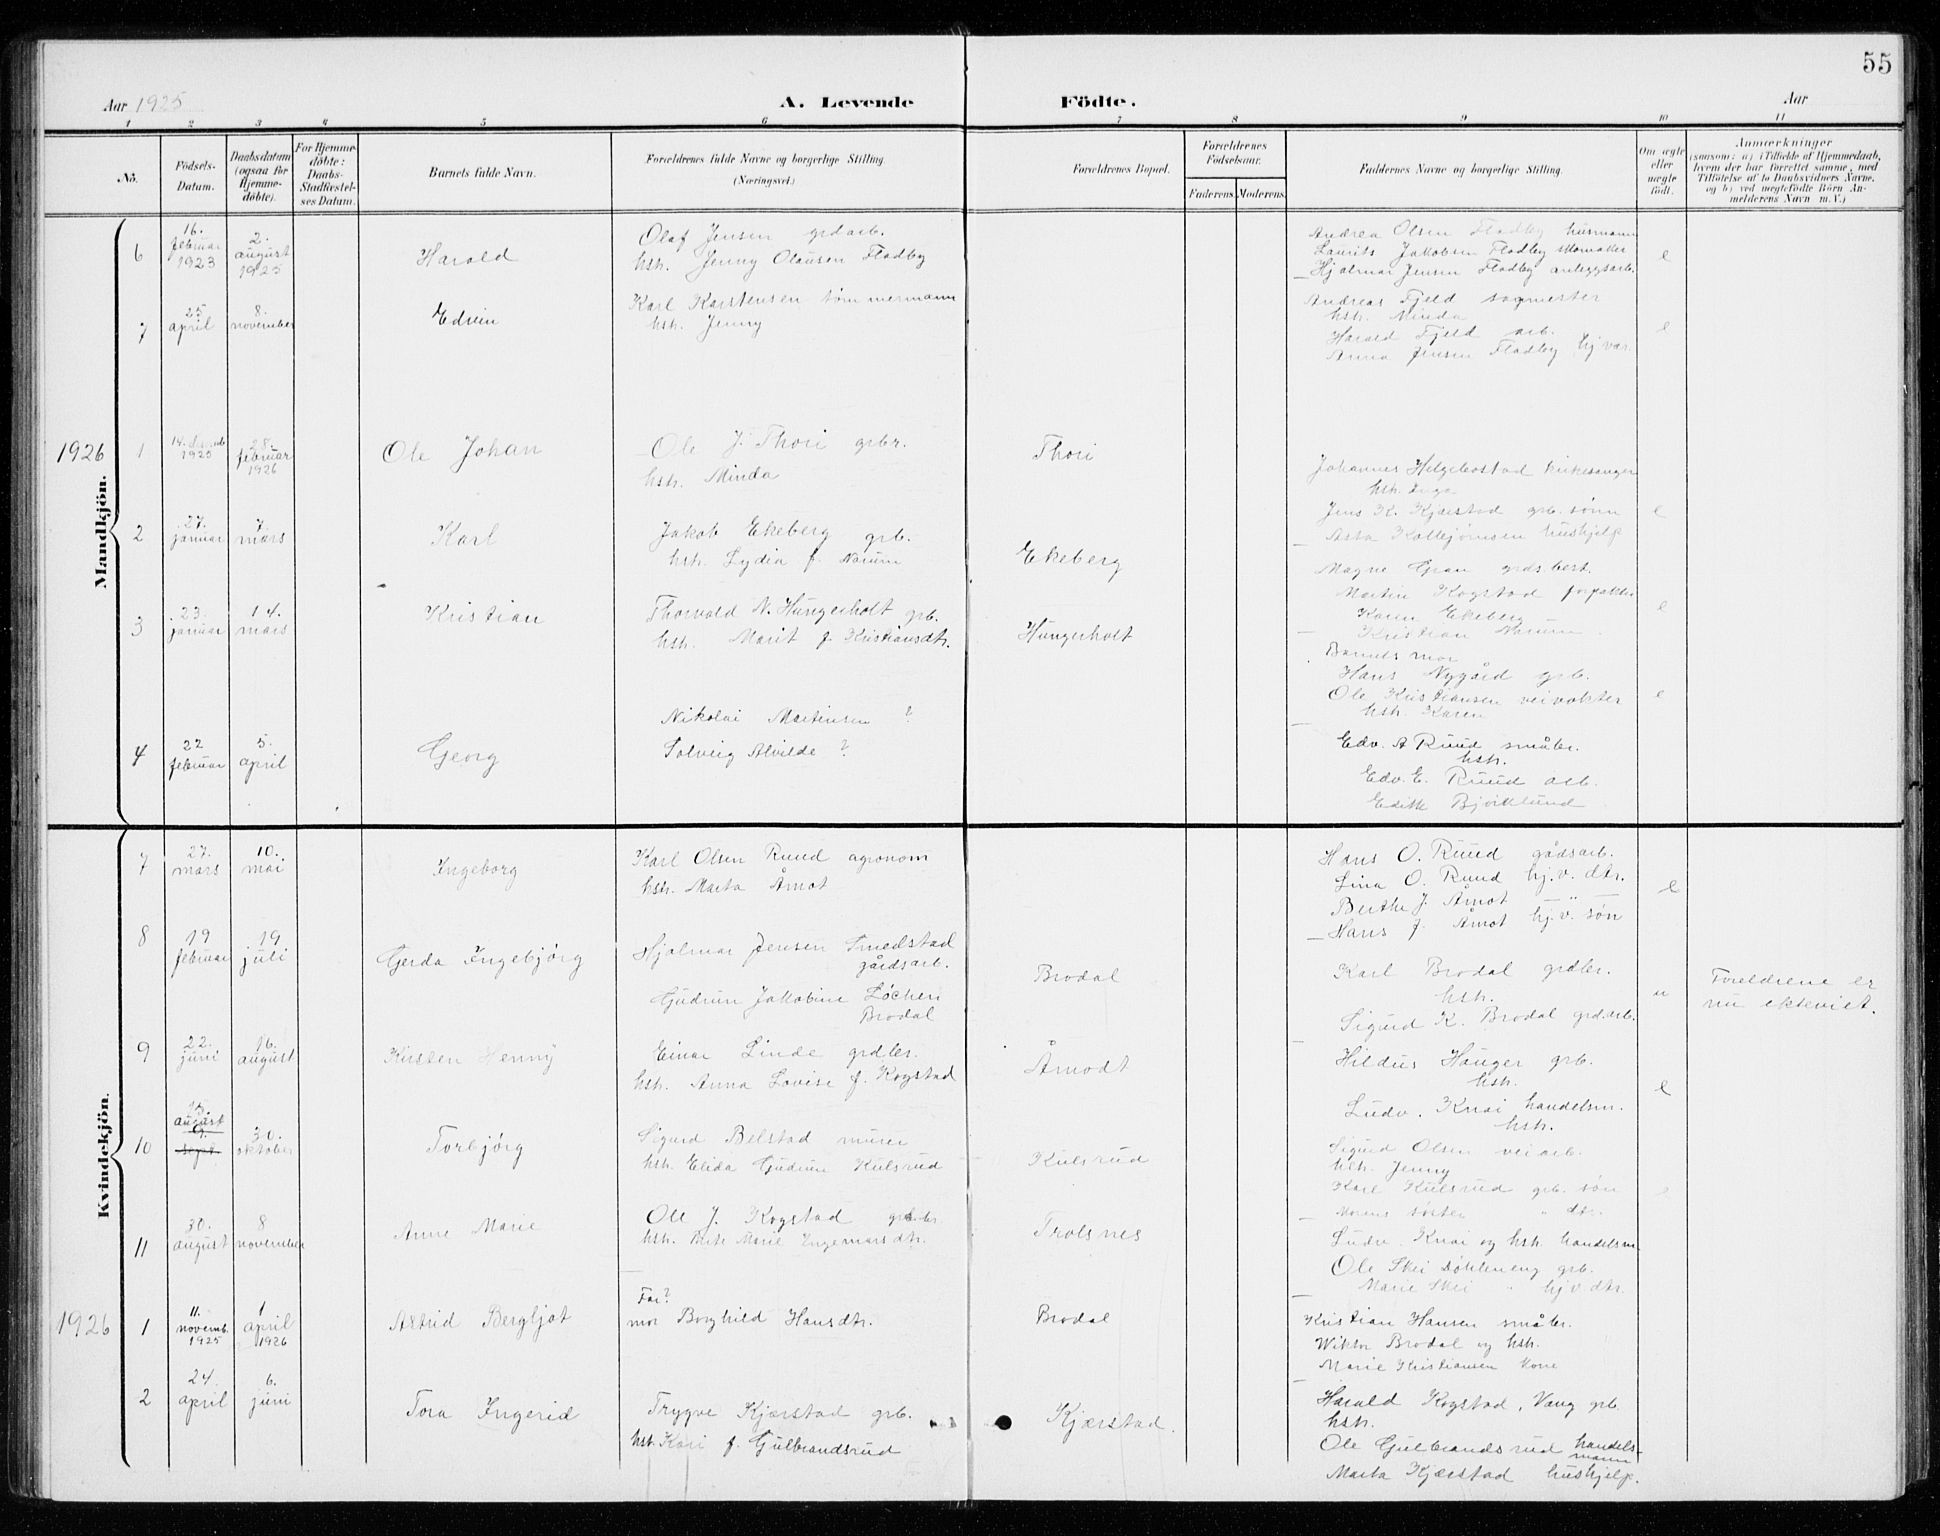 55
Aar 1925
A. Levende Födte.
Aar
1 2 3 4 5 6 7 8 9 10 11
No.
Födsels-Datum.
Daabsdatum (ogsaa for Hjemme-döbte).
For Hjemme-döbte: Daabs-Stadfæstel-ses Datum.
Barnets fulde Navn.
Forældrenes fulde Navne og borgerlige Stilling. (Næringsvei.)
Forældrenes Bopæl.
Forældrenes Födselsaar.
Faderens. Moderens.
Faddernes Navne og borgerlige Stilling.
Om ægte eller uægte födt.
Anmærkninger
(saasom: a) i Tilfælde af Hjemmedaab, hvem der har forrettet samme, med Tilföielse af to Daabsvidners Navne, og b) ved uegtefödte Börn An-melderens Navn m. V.)
Mandkjön.
6
16. februar 1923
2. august 1925
Harald
Olaf Jensen grdarb.
hstr. Jenny Olausen Fladby
Andrea Olsen Fladby husmann
Laurits Jakobsen Fladby skomaker
Hjalmar Jensen Fladby anleggsarb.
e
7
25 april
8. november
Edvin
Karl Karstensen tømmermann
hstr. Jenny
Andreas Fjeld sagmester
hstr. Minda
Harald Fjeld arb.
Anna Jensen Fladby hj.vær.
e
1926
1
14. 1925
28. februar 1926
Ole Johan
Ole J. Thori grbr.
hstr. Minda
Thori
Johannes Helgebostad kirkesanger
hstr. Inga
Jens K. Kjærstad grb. sønn
Asta Kollejørnsen hushjelp
e
2
27. januar
7. mars
Karl
Jakob Ekeberg grb.
hstr. Lydia f. Narum
Ekeberg
Magne Gran grds.best.
Martin Kogstad forpakter
Karen Ekeberg
Kristian Narum
e
3
23. januar
14. mars
Kristian
Thorvald N. Hungerholt grb.
hstr. Marit f. Kristiansdtr.
Hungerholt
Barnets mor
Hans Nygård grb.
Ole Kristiansen veivokter
hstr. Karen
e
4
22 februar
5. april
Georg
Nikolai Martinsen ?
Solveig Alvilde ?
Edv. A Ruud småbr.
hstr.
Edv. E. Ruud arb.
Edith Bjørklund
Kvindekjön.
7
27. mars
10. mai
Ingeborg
Karl Olsen Ruud agronom
hstr. Marta Åmot
Hans O. Ruud gådsarb.
Lina O. Ruud hj.v. dtr.
Berthe J. Åmot — " —
Hans J. Åmot hj.v. søn
e
8
19 februar
19 juli
Gerda Ingebjørg
Hjalmar Jensen Smedstad
gårdsarb.
Gudrun Jakobine Løchen
Brodal
Brodal
Karl Brodal grdbr.
hstr.
Sigurd K. Brodal grd.arb.
u
Foreldrene er
nu ekteviet.
9
22. juni
16. august
Kirsten Henny
Einar Linde grdbr.
hstr. Anna Lovise f. Kogstad
Åmodt
Hildus Hauger grb.
hstr.
Ludv. Knai handelsm.
hstr.
e
10
august
9.
sept.
30. oktober
Torbjørg
Sigurd Belstad murer
hstr. Elida Gudrun Kulsrud
Kulsrud
Sigurd Olsen veiarb.
hstr. Jenny
Karl Kulsrud grb. søn
Morens søster " dtr.
e
11
30. august
8 november
Anne Marie
Ole J. Kogstad
hstr. Marie Ingemarsdtr.
Trolsnes
Ludv. Knai og hstr. handelsm.
Ole Skei Døhleneng grb.
Marie Skei " hj.v. dtr.
1926
1
11. novemb. 1925
1 april 1926
Astrid Bergljot
Far?
mor Borghild Hansdtr.
Brodal
Kristian Hansen småbr.
Wiktor Brodal og hstr.
Marie Kristiansen kone
2
24. april
6. juni
Tora Ingerid
Trygve Kjærstad grb.
hstr. Kari f. Gulbrandsrud
Kjærstad.
Harald Kogstad, Vang grb.
hstr.
Ole Gulbrandsrud handels-
mann
Marta Kjærstad hushjelp.